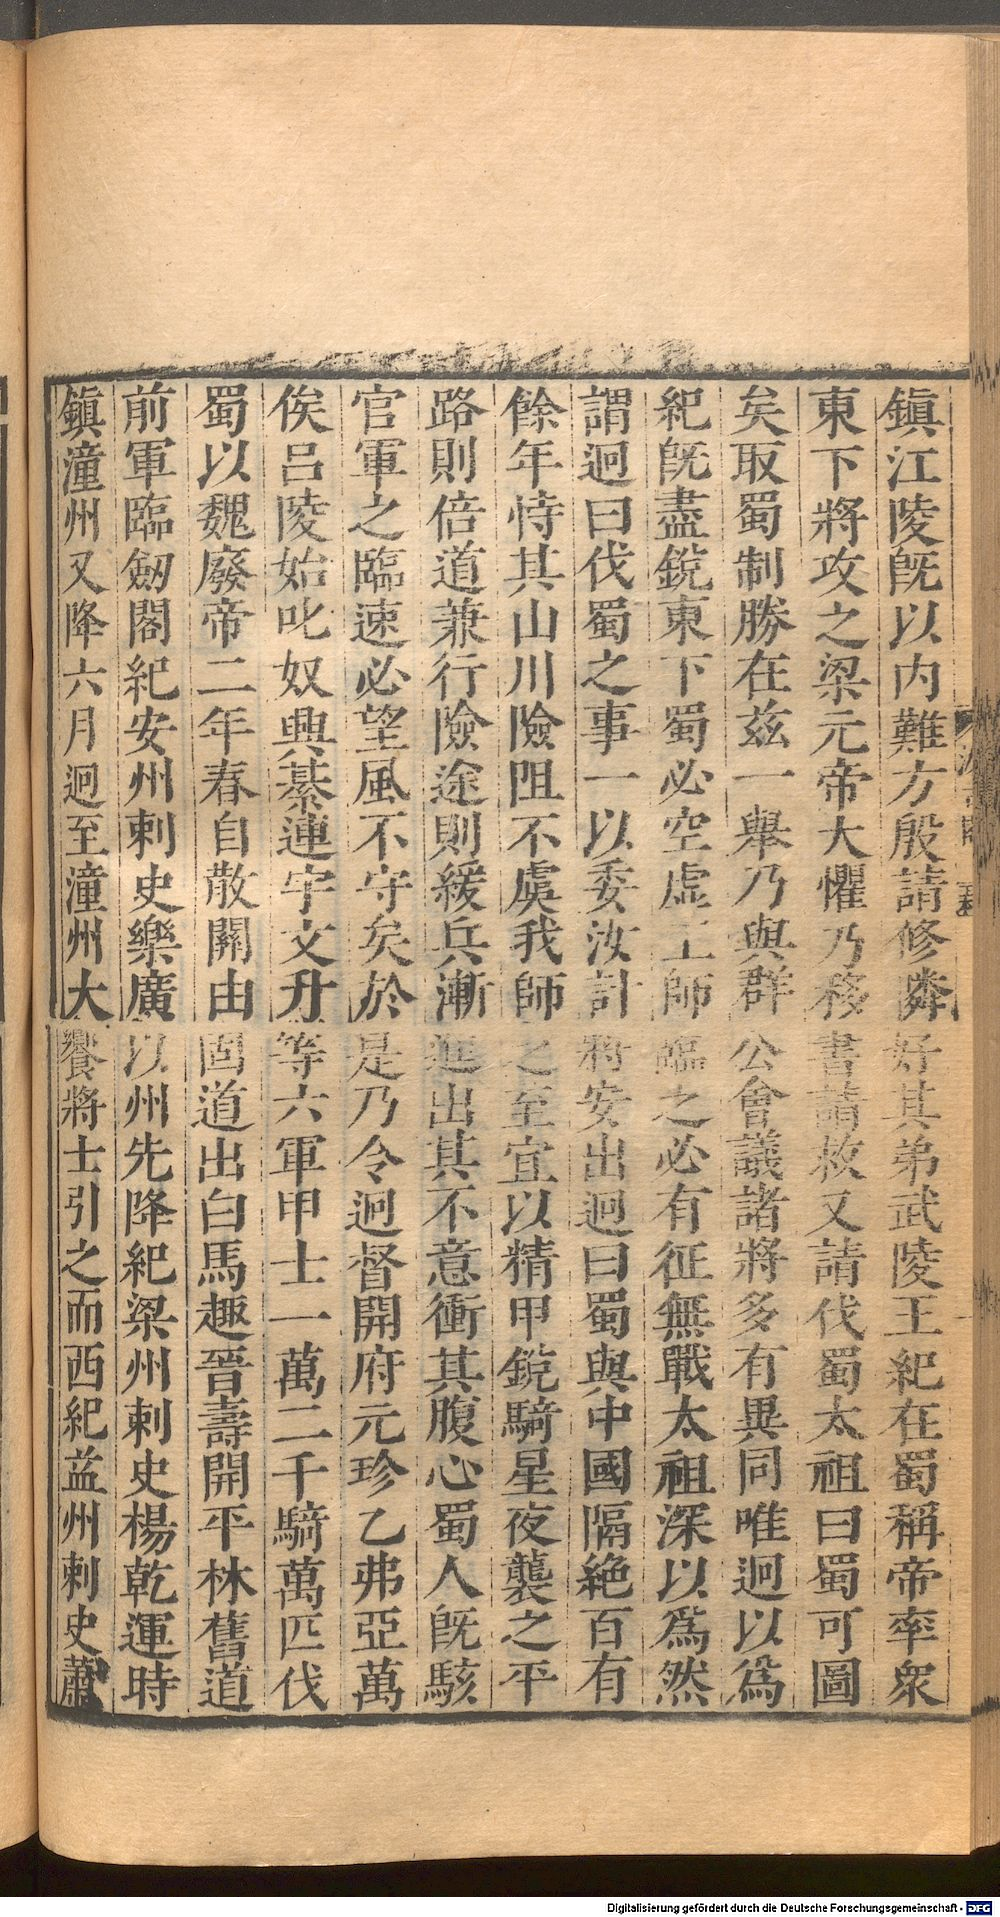 鎮江陵旣以内難方殷請修隣好其弟武陵王紀在蜀稱帝率衆
東下將攻之梁元帝大懼乃移書請救又請伐蜀太祖曰蜀可圖
矣取蜀制勝在茲一舉乃與群公會議諸將多有異同唯迥以爲
紀旣盡銳東下蜀必空虛王師臨之必有征無戰太祖深以爲然
謂迥曰伐蜀之事一以委汝計將安出迥曰蜀與中國隔絶百有
餘年恃其山川險阻不虞我師之至宜以精甲銳騎星夜襲之平
路則倍道兼行險途則緩兵漸進出其不意衝其腹心蜀人旣駭
官軍之臨速必望風不守矣於是乃令迥督開府元珍乙弗亞萬
俟呂陵始叱奴興綦連宇文升等六軍甲士一萬二千騎萬匹伐
蜀以魏廢帝二年春自散關由固道出白馬趣晉壽開平林舊道
前軍臨劒閣紀安州刺史樂廣以州先降紀梁州刺史楊乾運時
鎮潼州又降六月迥至潼州大饗將士引之而西紀益州刺史蕭
Digitalisierung gefördert durch die Deutsche Forschungsgemeinschaft - DFG